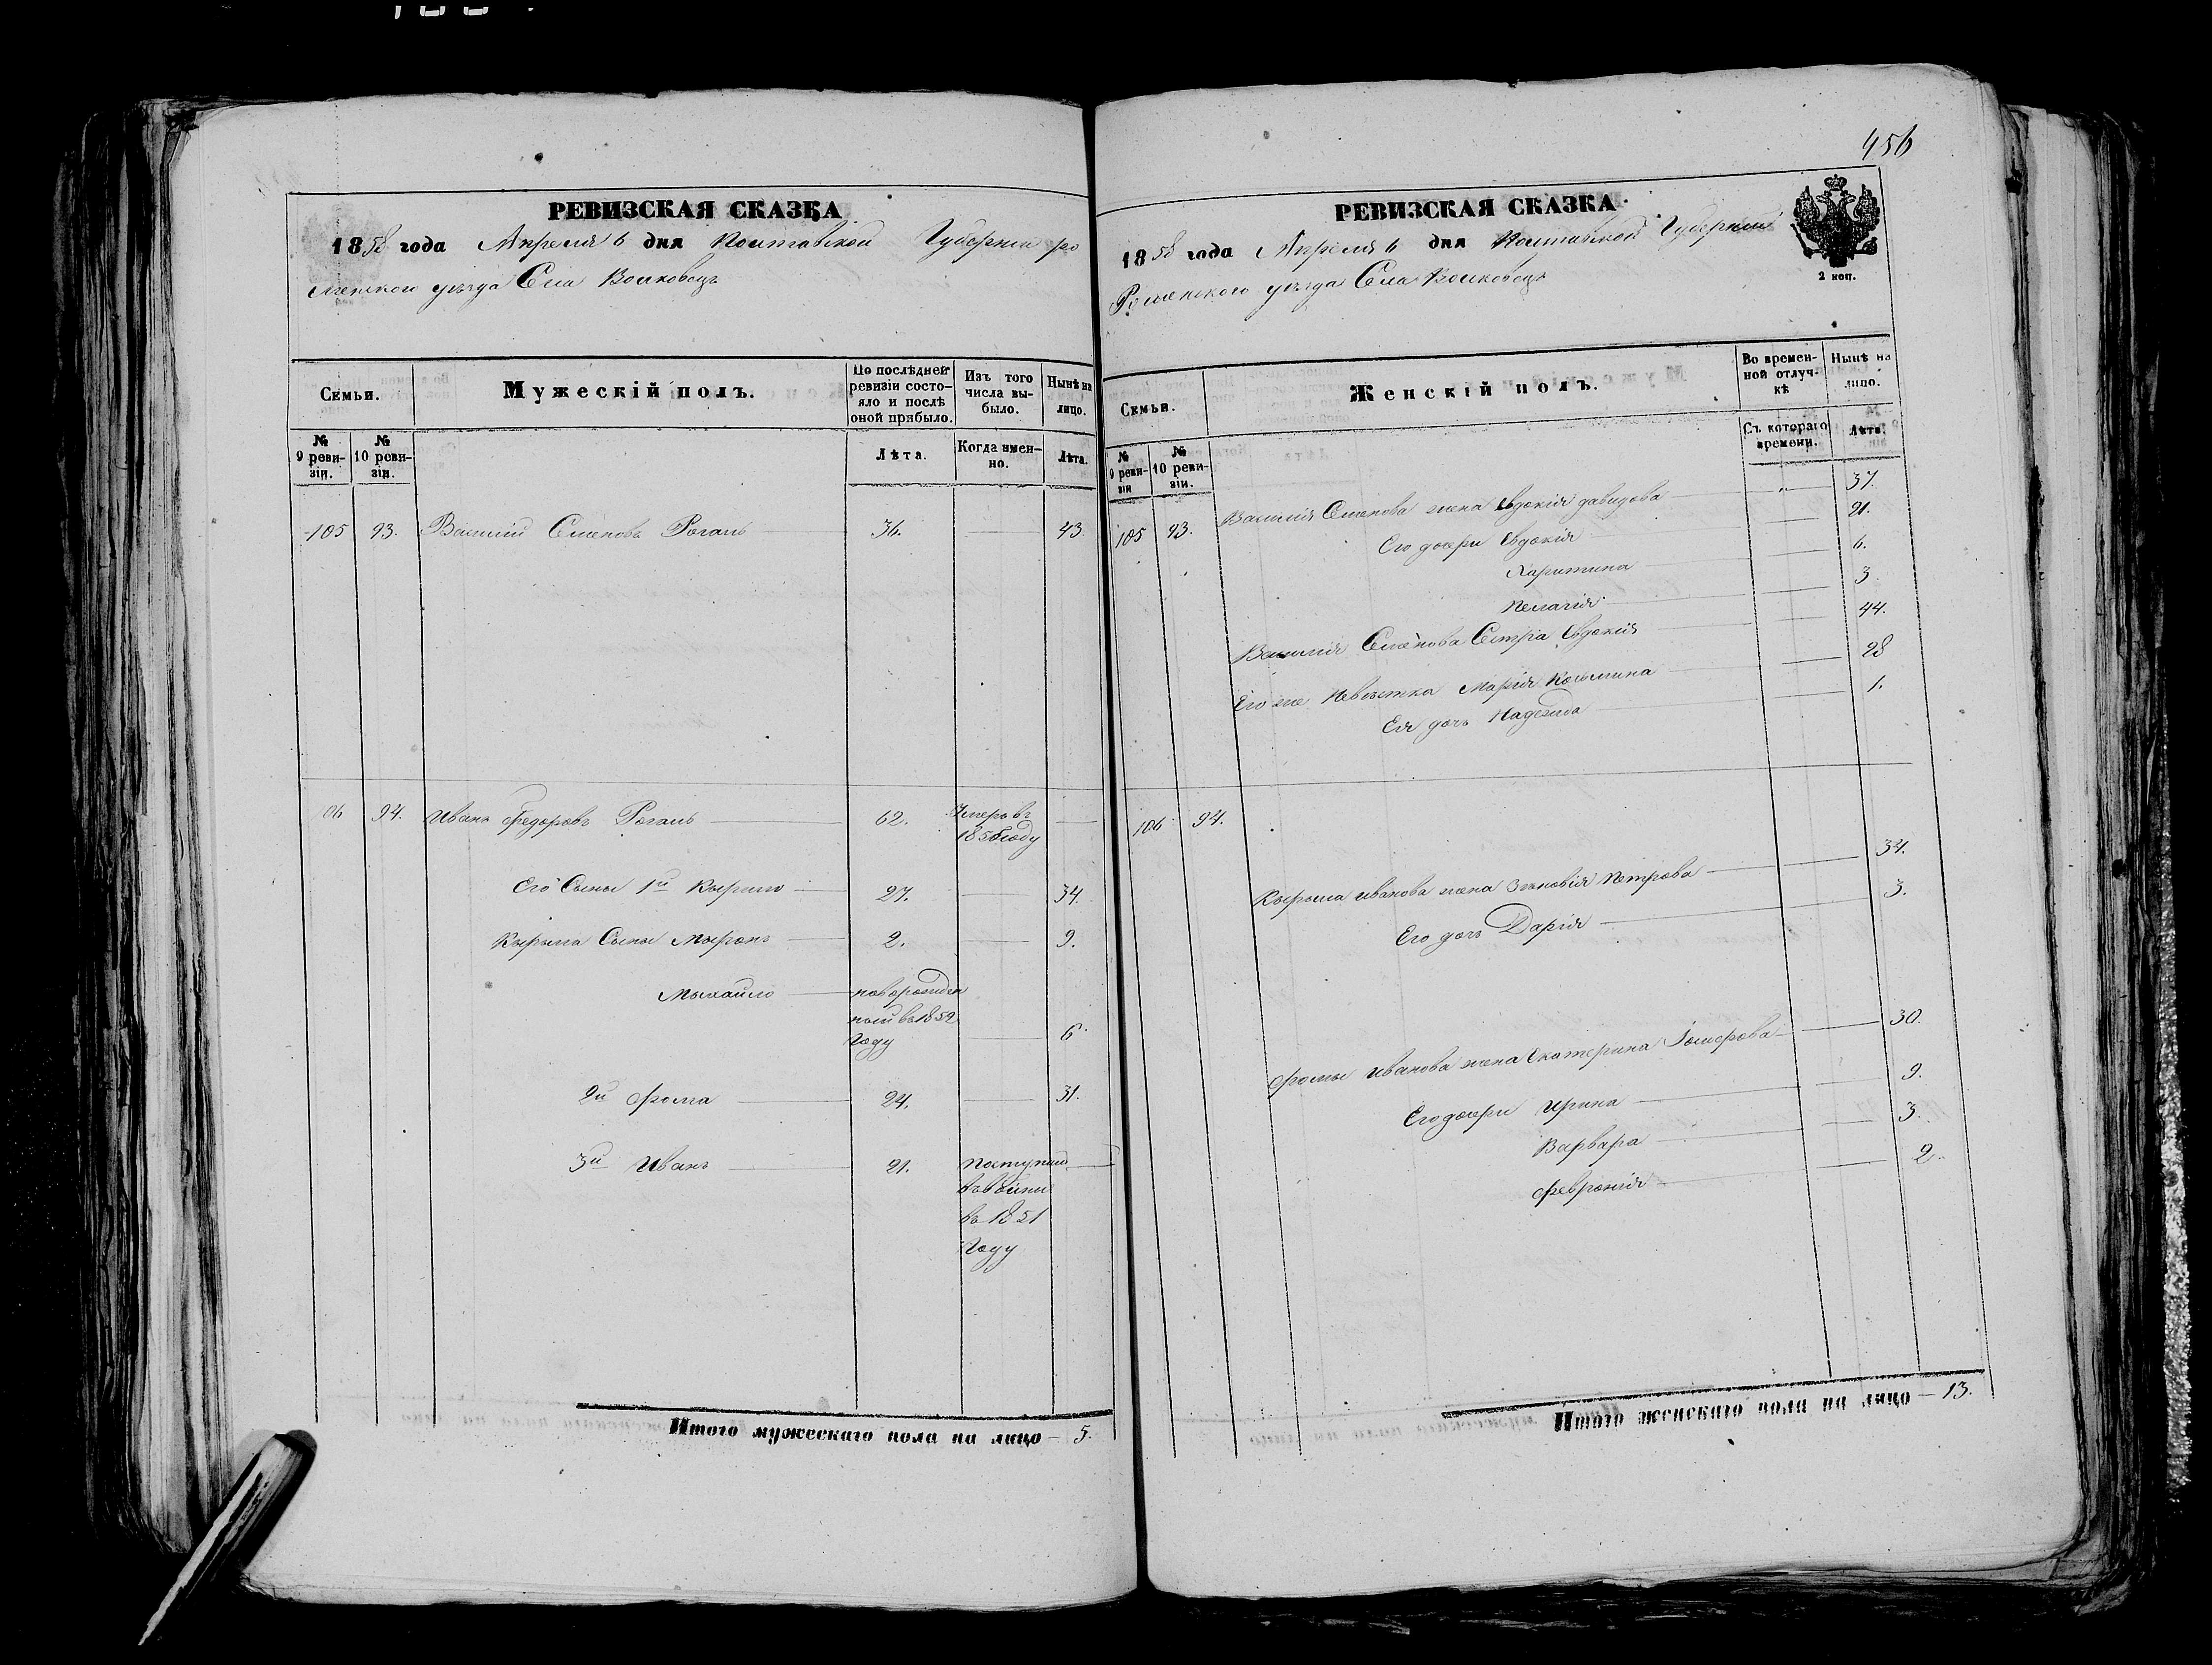 456
РЕВИЗСКАЯ СКАЗКА
1858 года Апреля 6 дня Полтавской Губернии ро
менского уезда Села Волковец
Семьи.
Мужескій полъ.
По послѣдней ревизіи состояло и послѣ оной прибыло.
Изъ того числа выбыло.
Нынѣ на лицо.
№ 9 ревизіи.
№ 10 ревизіи.
Лѣта.
Когда именно.
Лѣта.
105 93. Василий Семеновъ Рогаль 36. 43.
106 94. Иванъ Федоровъ Рогаль 62. Умеръ въ
185 году
Его Сыны 1й Кырило 27. 34.
Кырыла Сыны Мыронъ 2. 9.
Мыхайло новорожден
ный въ 1852
Году 6.
2й Фома 24. 31.
3й Иванъ 21. Поступил
въ 1851
Году
Итого мужескаго пола на лицо – 5.
РЕВИЗСКАЯ СКАЗКА.
1858 года Апреля 6 дня Полтавской Губернии
Роменского уезда Села Волковец
2 коп.
Семьи.
Женскій полъ.
Во временной отлучкѣ
Нынѣ на лицо.
№ 9 ревизіи
№ 10 ревизіи.
Съ котораго времени.
Лѣта.
105 93. Василия Семенова жена Евдокия давидова 37.
Его дочери Евдокия 21.
Харитина 6.
Пелагия 3.
Василия Семенова Сестра Евдокия 44.
Его же Невестка Мария Козмина 28
Ея дочь Надежда 1.
106. 94.
Кырыла Иванова жена Зеновия Петрова 34.
Его дочь Дария 3.
Фомы Иванова жена Екатерина 30.
Его дочери Ирина 9.
Варвара 3.
Феврония 2.
Итого женскаго пола на лицо – 13.